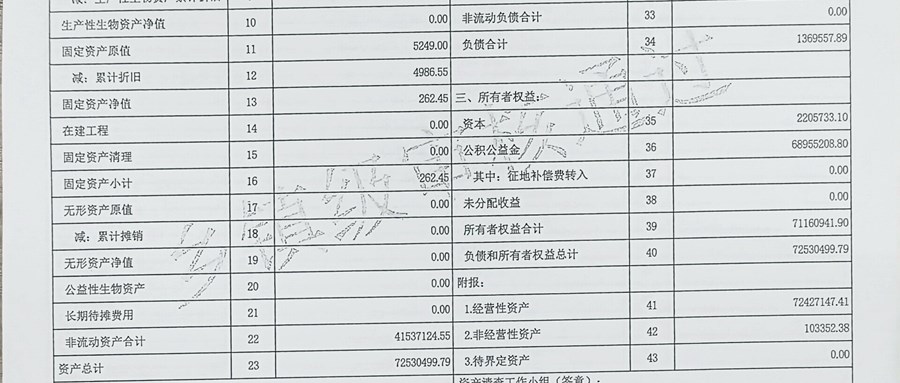 生产性生物资产净值 10 0.00 非流动负债合计 33 0.00
固定资产原值 11 5249.00 负债合计 34 1369557.89
减：累计折旧 12 4986.55
固定资产净值 13 262.45 三、所有者权益：
在建工程 14 0.00 资本 35 2205733.10
固定资产清理 15 0.00 公积公益金 36 68955208.80
固定资产小计 16 262.45 其中：征地补偿费转入 37 0.00
无形资产原值 17 0.00 未分配收益 38 0.00
减：累计摊销 18 0.00 所有者权益合计 39 71160941.90
无形资产净值 19 0.00 负债和所有者权益总计 40 72530499.79
公益性生物资产 20 0.00 附报：
长期待摊费用 21 0.00 1.经营性资产 41 72427147.41
非流动资产合计 22 41537124.55 2.非经营性资产 42 103352.38
资产总计 23 72530499.79 3.待界定资产 43 0.00
资产清查工作小组（签章）：